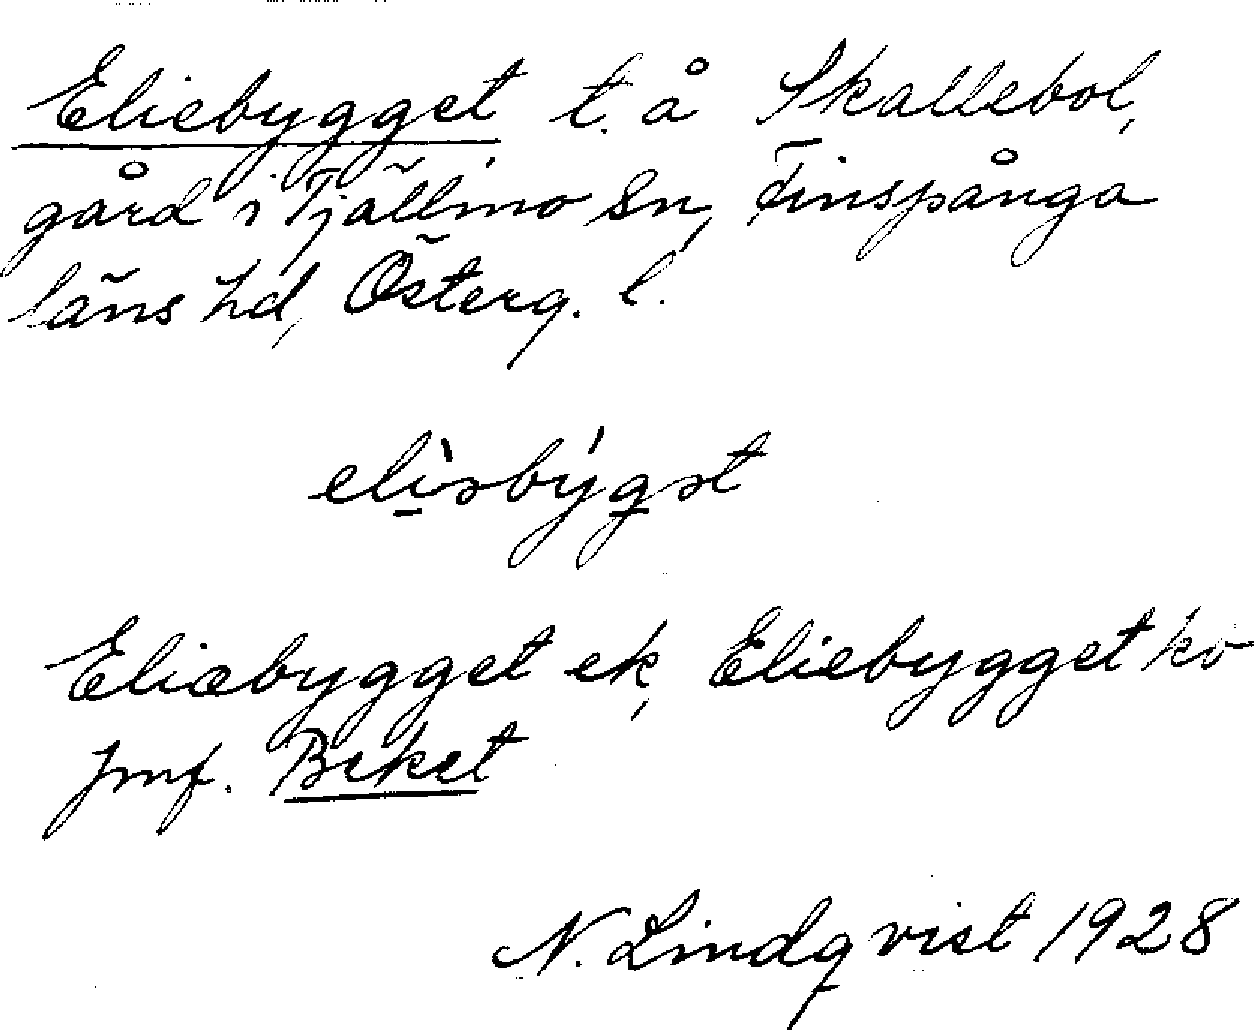 Eliebygget t. å Skallebol,
gård i Tjällmo sn, Finspånga
läns hd, Österg. l.
elìsbýgst
Eliebygget ek, Eliebygget ko
Jmf. Beket
N. Lindqvist 1928